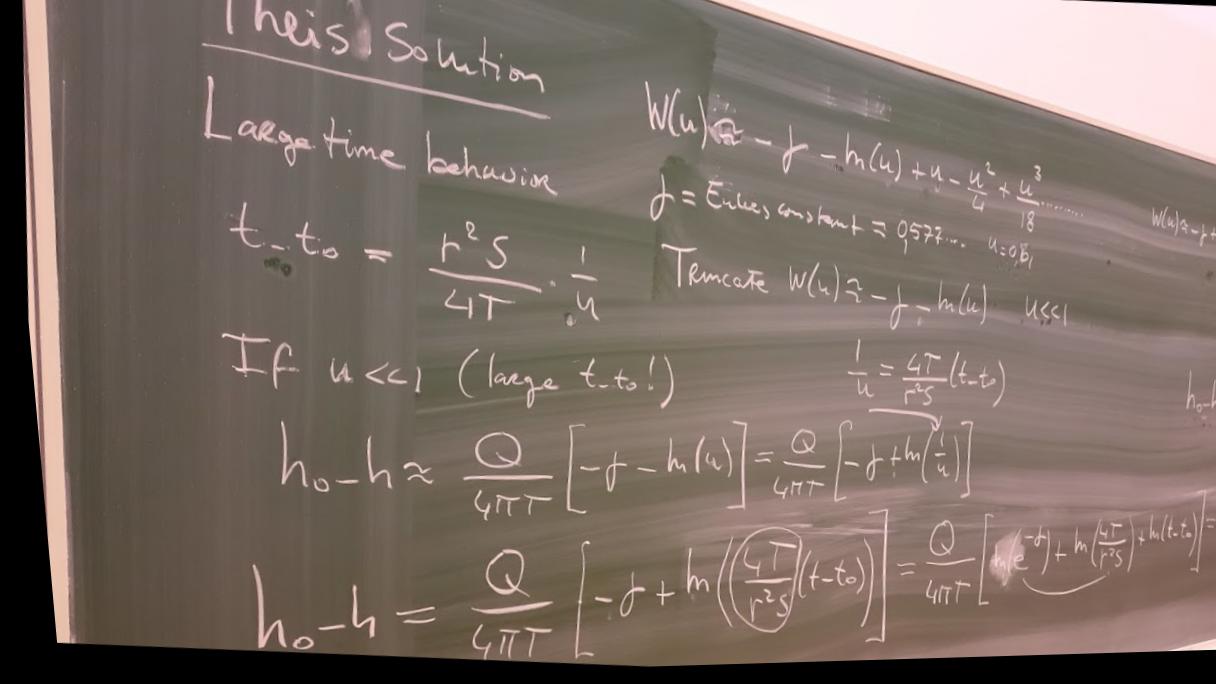 Theis Solution
Large time behavior
t-t₀ = r²S/4T · 1/u
If u <<1 (large t-t₀!)
h₀-h ≈ Q/4πT [-γ - ln(u)] = Q/4πT [-γ + ln(1/u)]
h₀-h = Q/4πT [-γ + ln((4T/r²S)(t-t₀))] = Q/4πT [ln(e^-γ) + ln(4T/r²S) + ln(t-t₀)] =
W(u) ≈ -γ - ln(u) + u - u²/4 + u³/18 ........
γ = Eulers constant ≈ 0,577....
Truncate W(u) ≈ -γ - ln(u) u<<1
1/u = 4T/r²S (t-t₀)
W(u)≈-γ+
h₀-h